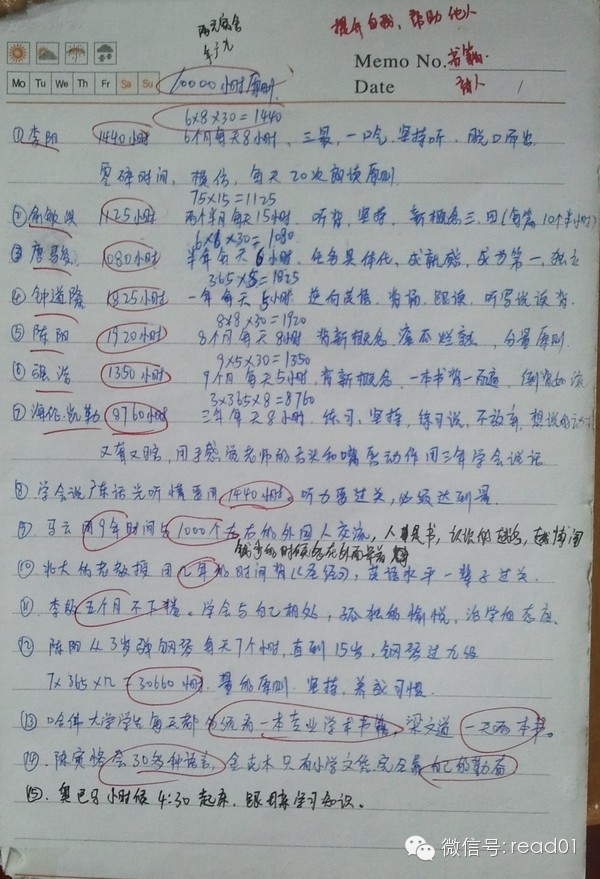 提升自我、帮助他人
Memo No.
Mo Tu We Th Fr Sa Su
10000小时原则
Date /
6x8x30=1440
①李阳 1440小时 6个月每天8小时，三最，一口气，坚持听，脱口而出
零碎时间，模仿，每天20次朗读原则
75x15=1125
②俞敏洪 1125小时 两个半月每天15小时，听背，坚持，新概念三、四(每篇10个半小时)
6x6x30=1080
③唐骏 1080小时 半年每天6小时，任务具体化，成就感，成为第一，独立
365x5=1825
④钟道隆 1825小时 一年每天5小时，逆向英语，背诵，跟读，听写说读背
8x8x30=1920
⑤陈阳 1920小时 8个月每天8小时 背新概念 滚瓜烂熟，分量原则
9x5x30=1350
⑥ 1350小时 9个月每天5小时，背新概念，一本书背一百遍，倒背如流
3x365x8=8760
⑦海伦.凯勒 8760小时 三年每天8小时，练习，坚持，练习说，不放弃，想说的动力
又盲又哑，用手感觉老师的舌头和嘴唇动作用三年学会说话
⑧学会说广东话光听懂要用1440小时，听力要过关，必须达到量
⑨马云用9年时间与1000个左右的外国人交流，人是书，认识的越多，越博闻
⑩北大的老教授用几年的时间背《圣经》，英语水平一辈子过关
⑪李敖五个月不下楼，学会与自己相处，孤独的愉悦，治学的态度
⑫陈阳从3岁弹钢琴每天7个小时，直到15岁，钢琴过九级
7x365x12=30660小时 量的原则 坚持，养成习惯
⑬哈佛大学学生每天都必须看一本专业学术书籍，梁文道一天两本书。
⑭陈寅恪会30多种语言，金克木只有小学文凭完全靠自己的勤奋
⑮.奥巴马小时候4:30起床，跟母亲学习知识。
微信号: read01